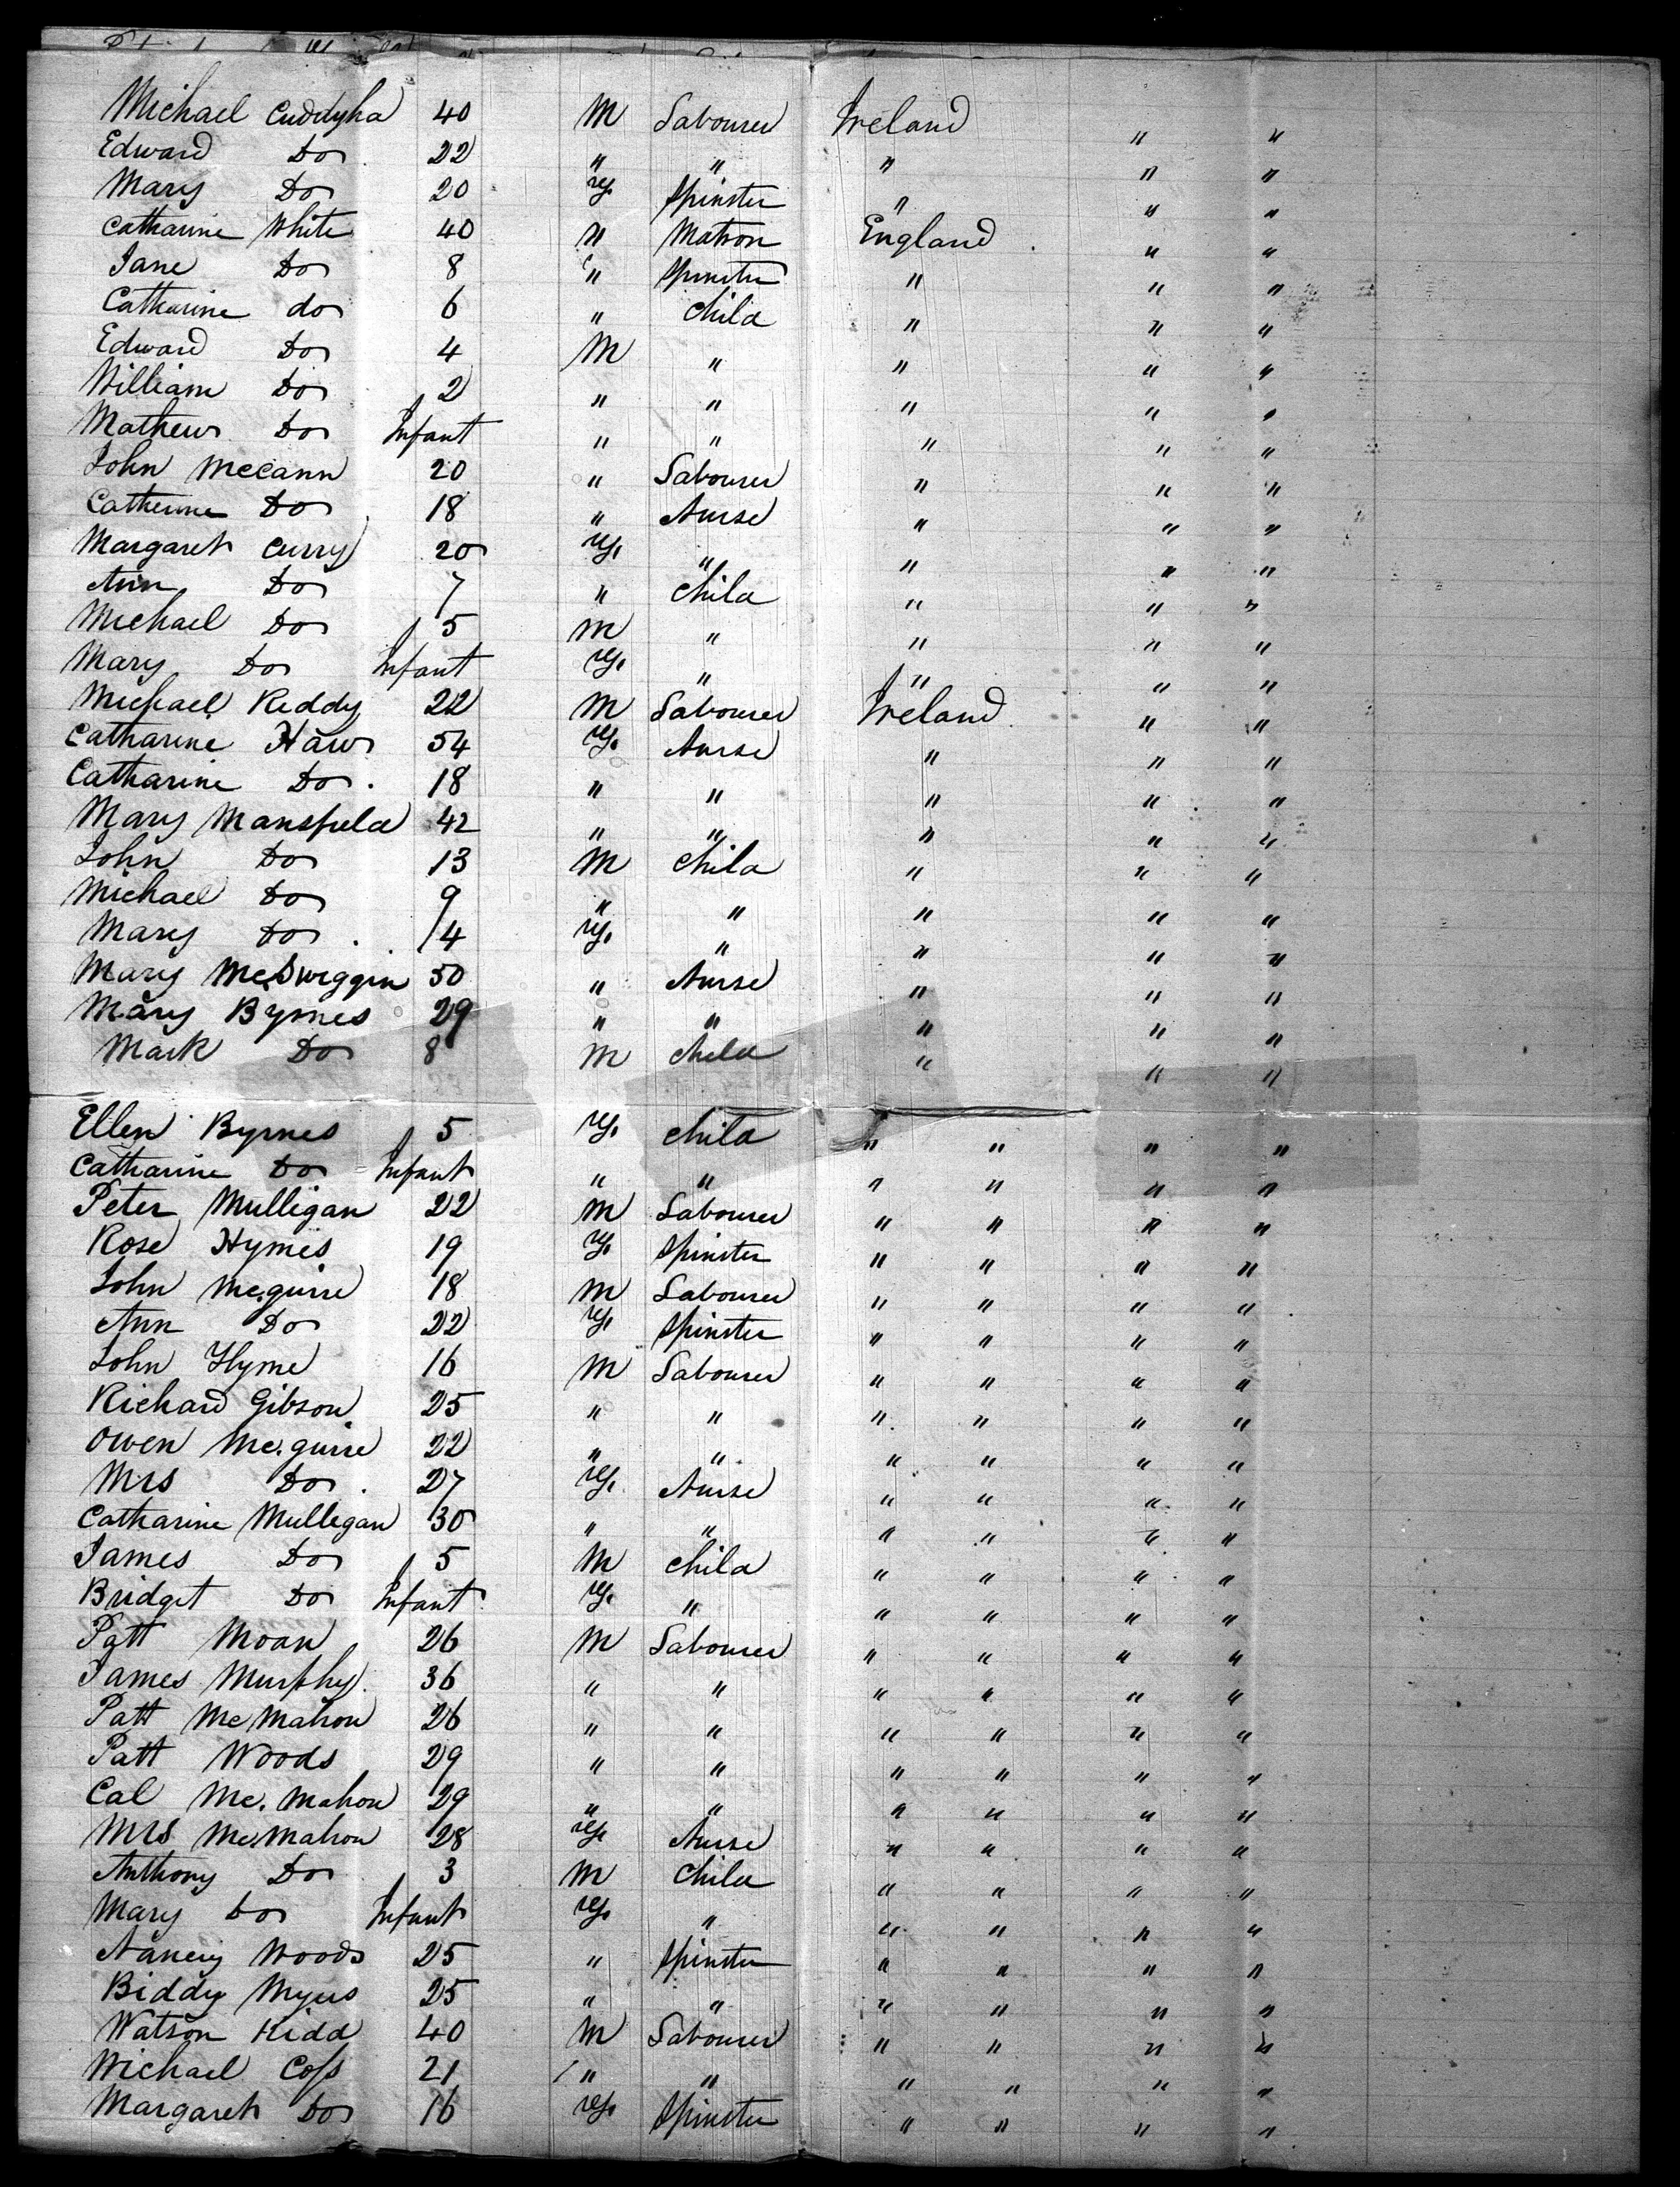 Michael Cuddyha 40 M Labourer Ireland " "
Edward Do 22 " " " " "
Mary Do 20 fy. Spinster " " "
Catharine White 40 " Matron England " "
Jane Do 8 " Spinster " " "
Catharine do 6 " Child " " "
Edward Do 4 M " " " "
William Do 2 " " " " "
Mathew Do Infant " " " " "
John McCann 20 " Labourer " " "
Catherine Do 18 " Nurse " " "
Margaret Curry 20 fy. " " " "
Ann Do 7 " Child " " "
Michael Do 5 M " " " "
Mary Do Infant fy. " " " "
Michael Reddy 22 M Labourer Ireland " "
Catharine Haw 54 fy. Nurse " " "
Catharine Do. 18 " " " " "
Mary Mansfield 42 " " " " "
John Do 13 M Child " " "
Michael Do 9 " " " " "
Mary Do. 14 fy. " " " "
Mary McSwiggin 50 " Nurse " " "
Mary Byrnes 29 " " " " "
Mark Do 8 M Child " " "
Ellen Byrnes 5 fy. Child " " " "
Catharine Do Infant " " " " " "
Peter Mulligan 22 M Labourer " " " "
Rose Hymes 19 fy. Spinster " " " "
John Mcguire 18 M Labourer " " " "
Ann Do 22 fy. Spinster " " " "
John Hyme 16 M Labourer " " " "
Richard Gibson 25 " " " " " "
Owen Mc.guire 22 " " " " " "
Mrs Do. 27 fy. Nurse " " " "
Catharine Mulligan 30 " " " " " "
James Do 5 M Child " " " "
Bridget Do Infant fy. " " " " "
Patt Moan 26 M Labourer " " " "
James Murphy 36 " " " " " "
Patt McMahon 26 " " " " " "
Patt Woods 29 " " " " " "
Cal Mc. Mahon 29 " " " " " "
Mrs McMahon 28 fy. Nurse " " " "
Anthony Do 3 M Child " " " "
Mary Do Infant fy. " " " " "
Nancy Woods 25 " Spinster " " " "
Biddy Myers 25 " " " " " "
Watson Kidd 40 M Labourer " " " "
Michael Coſs 21 " " " " " "
Margaret Do 16 fy. Spinster " " " "